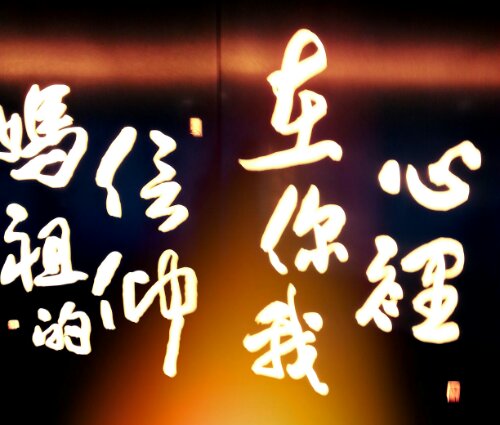 媽祖的
信仰
在你我
心裡